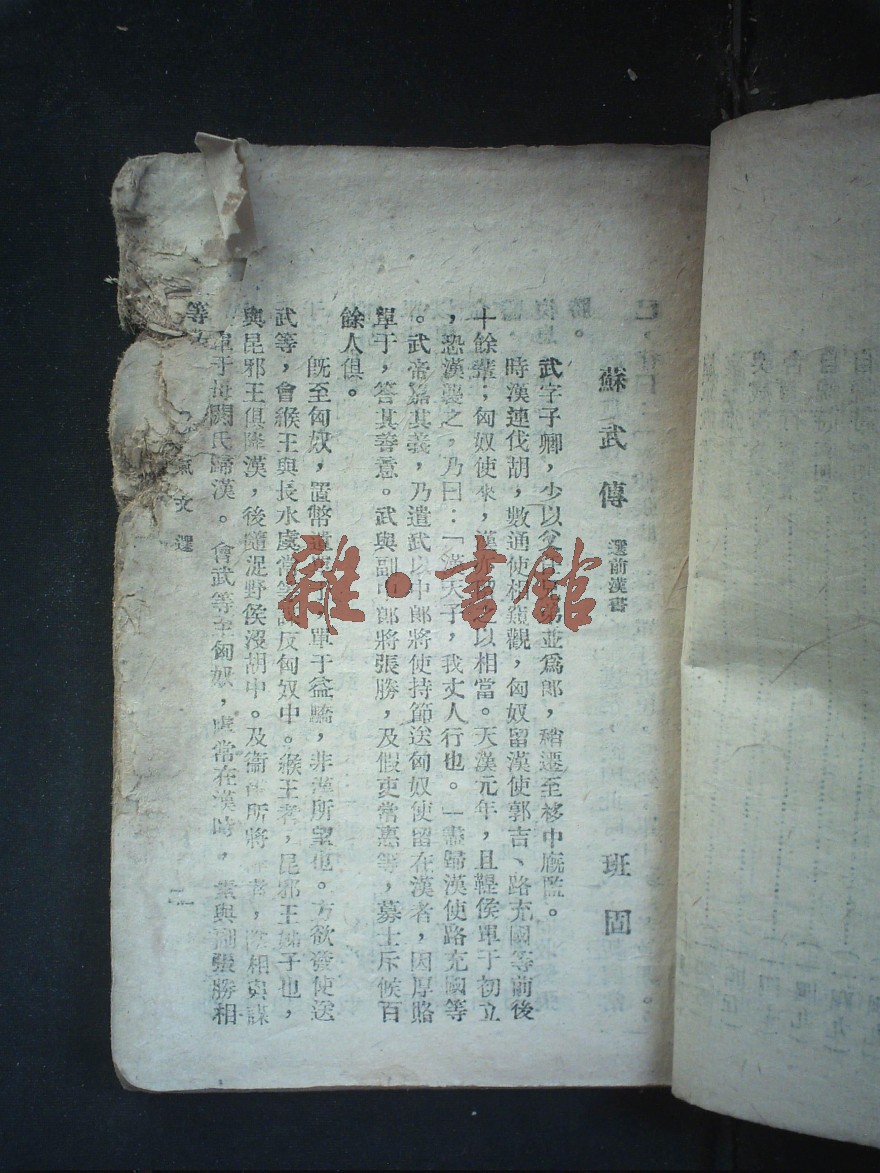 蘇武傳 選前漢書 班固
武字子卿，少以父任，兄弟並爲郎，稍遷至栘中廐監。
時漢連伐胡，數通使相窺觀，匈奴留漢使郭吉、路充國等前後
十餘輩；匈奴使來，漢亦留之以相當。天漢元年，且鞮侯單于初立
，恐漢襲之，乃曰：「漢天子，我丈人行也。」盡歸漢使路充國等
。武帝嘉其義，乃遣武以中郎將使持節送匈奴使留在漢者，因厚賂
單于，答其善意。武與副中郎將張勝，及假吏常惠等，募士斥候百
餘人俱。
既至匈奴，置幣遺單于，單于益驕，非漢所望也。方欲發使送
武等，會緱王與長水虞常等謀反匈奴中。緱王者，昆邪王姊子也，
與昆邪王俱降漢，後隨浞野侯沒胡中。及衞律所將降者，陰相與謀
單于母閼氏歸漢。會武等至匈奴，虞常在漢時，素與副張勝相
等
氣文選
二
雜·書館